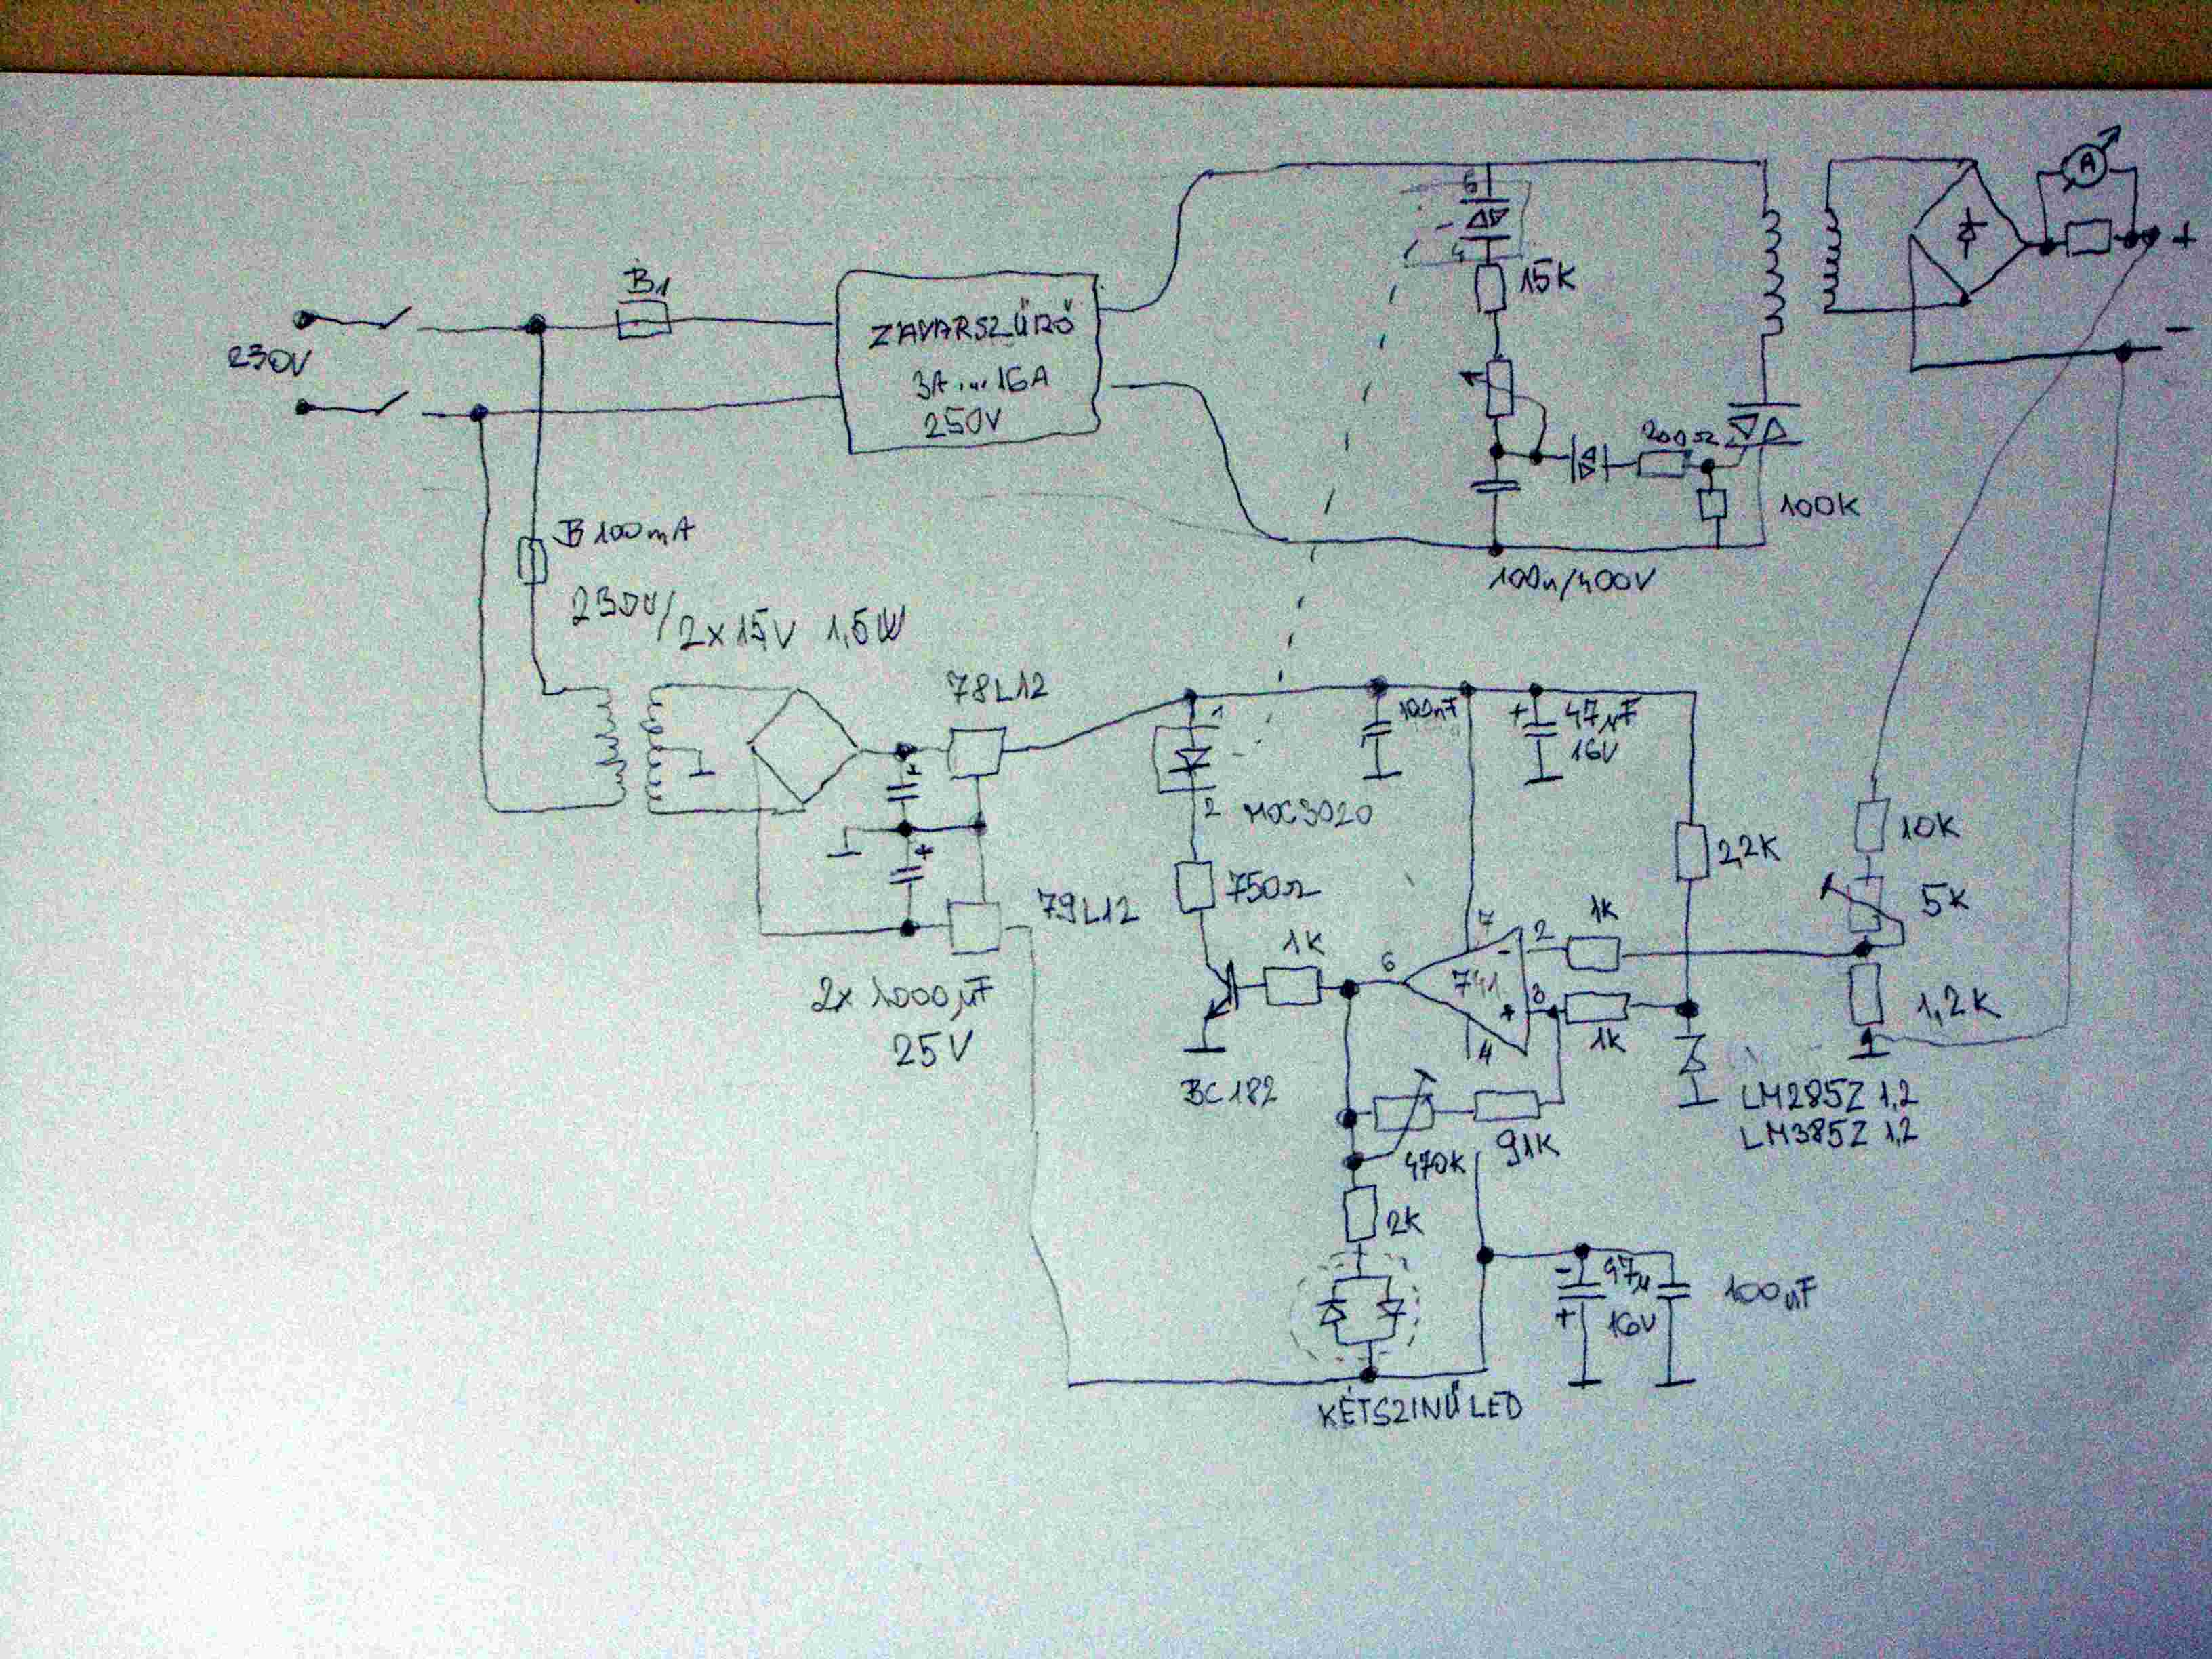 B1
230V
ZAVARSZŰRŐ
3A ... 16A
250V
6
4
15K
200Ω
100K
100n/400V
A
+
-
B 100mA
230V/
2x15V 1,5W
78L12
79L12
2x 1000µF
25V
1
2
MOC3020
750Ω
1K
BC182
100nF
+
47µF
16V
2,2K
10K
5K
1,2K
7
6
741
2
-
3
+
4
1K
1K
LM285Z 1,2
LM385Z 1,2
470K
91K
2K
KÉTSZINŰ LED
-
47µ
+
16V
100nF